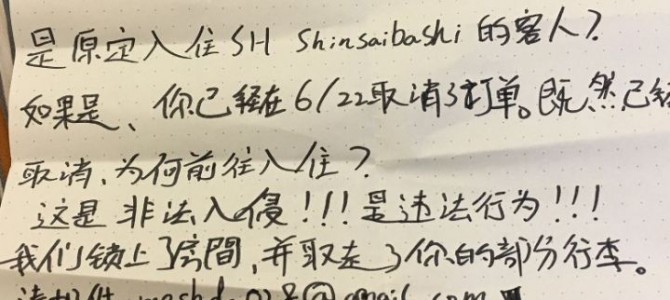 是原定入住SH Shinsaibashi 的客人?
如果是、你已经在6/22取消了订单。既然已经
取消,为何前往入住?
这是非法入侵!!!是违法行为!!!
我们锁上了房間,并取走了你的部分行李。
@gmail.com